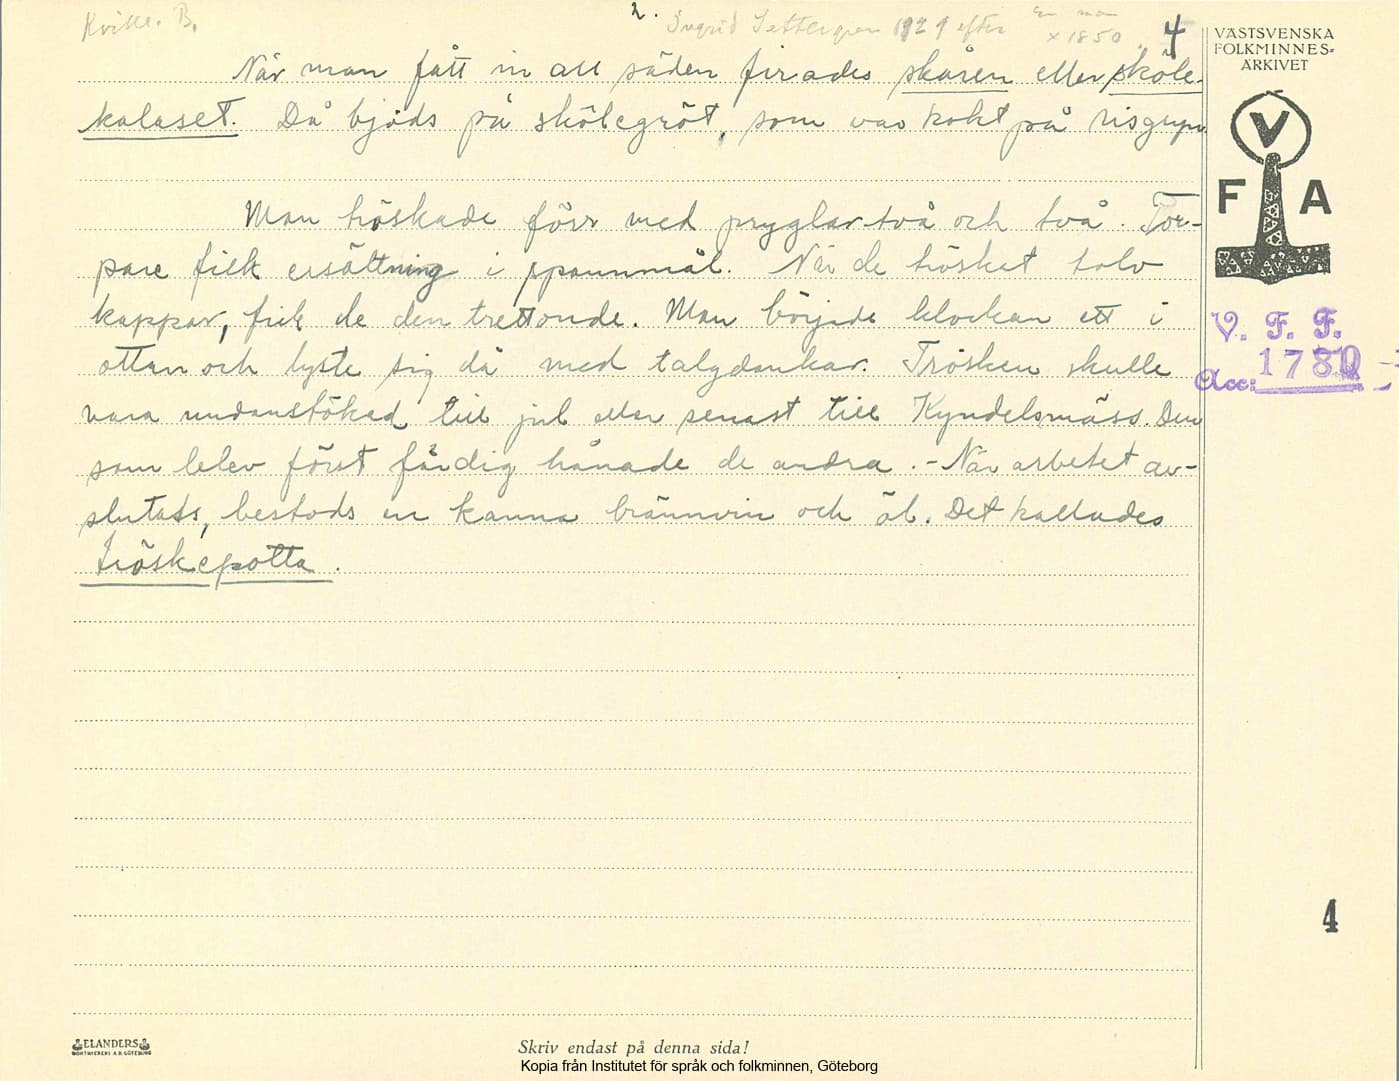 Kville. B.
2.
Ingrid Settergren 1929 efter
En man
x 1850
4
När man fått in all säden firades skåren eller sköle-
kalaset. Då bjöds på skölegröt, som var kokt på risgryn.
Man tröskade förr med pryglar två och två. Tor-
pare fick ersättning i spannmål. När de trösket tolv
kappar, fick de den trettonde. Man började klockan ett i
ottan och lyste sig då med talgdankar. Trösken skulle
vara undanstökad till jul eller senast till Kyndelsmäss. Den
som blev först färdig hånade de andra. - När arbetet av-
slutats, bestods en kanna brännvin och öl. Det kallades
tröskepotta.
VÄSTSVENSKA
FOLKMINNES-
ARKIVET
V
F A
V. F. F.
Acc: 1780
4
ELANDERS
Skriv endast på denna sida!
Kopia från Institutet för språk och folkminnen, Göteborg